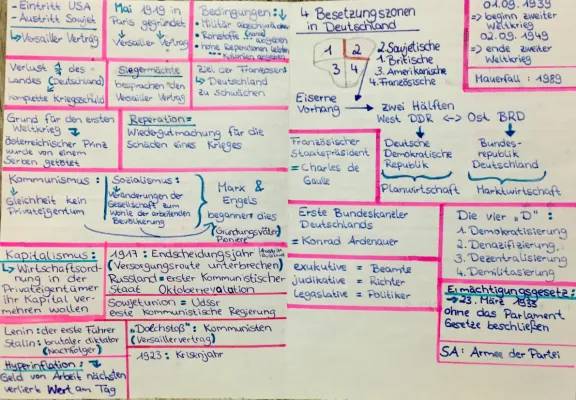 - Eintritt USA
- Austritt Sowjet
↳ Versailler Vertrag
Mai 1919 in
Paris gegründet
Versailler Vertrag
Bedingungen:
- Militär abschwächen
- Rohstoffe
abgeben
- hohe Reperationen leisten
- Kolonien abgeben
Verlust
des
Landes (Deutschland)
komplette Kriegsschuld
Siegermächte
besprachen den
Versailler Vertrag
Ziel der Franzosen:
↳ Deutschland
zu schwächen
Grund für den ersten
Weltkrieg
österreichischer Prinz
wurde von einem
Serben getötet
Reperation=
Wiedergutmachung für die
Schäden eines Krieges
Kommunismus:
↳ Gleichheit kein
Privateigentum
Sozialismus:
↳ Veränderungen der
Gesellschaft zum
Wohle der arbeitenden
Bevölkerung
Marx &
Engels
begannen dies
(Gründungsväter)
Pioniere
Kapitalismus:
↳ Wirtschaftsord-
nung in der
Privateigentümer
ihr Kapital ver-
mehren wollen
1917: Endscheidungsjahr
(Versorgungsroute unterbrechen)
Russland = erster Kommunistischer
Staat Oktoberrevolation
Sowjetunion = Udssr
erste kommunistische Regierung
Lenin: der erste Führer
Stalin: brutaler diktator
(Nachfolger)
"Dolchstoß": Kommunisten
(Versaillervertrag)
1923: Krisenjahr
Hyperinflation:
Geld von Arbeit nächsten
verliert Wert am Tag
4 Besetzungszonen
in Deutschland
1 2
3 4
2. Sowjetische
1. Britische
3. Amerikanische
4. Französische
01.09.1939
=> beginn zweiter
Weltkrieg
02.09.1949
=> ende zweiter
Weltkrieg
Mauerfall: 1989
Eiserne
Vorhang
zwei Hälften
West DDR <-> Ost BRD
Deutsche
Demokratische
Republik
Bundes-
republik
Deutschland
Planwirtschaft
Marktwirtschaft
Französischer
Staatspräsident
= Charles de
Gaulle
Erste Bundeskanzler
Deutschlands
= Konrad Ardenauer
Die vier „D":
1. Demokratisierung
2. Denazifizierung
3. Dezentralisierung
4. Demilitasierung
exukutive = Beamte
judikative = Richter
Legaslative = Politiker
Eimächtigungsgesetz:
→ 23. März 1933
ohne das Parlament
Gesetze beschließen
SA: Armee der Partei